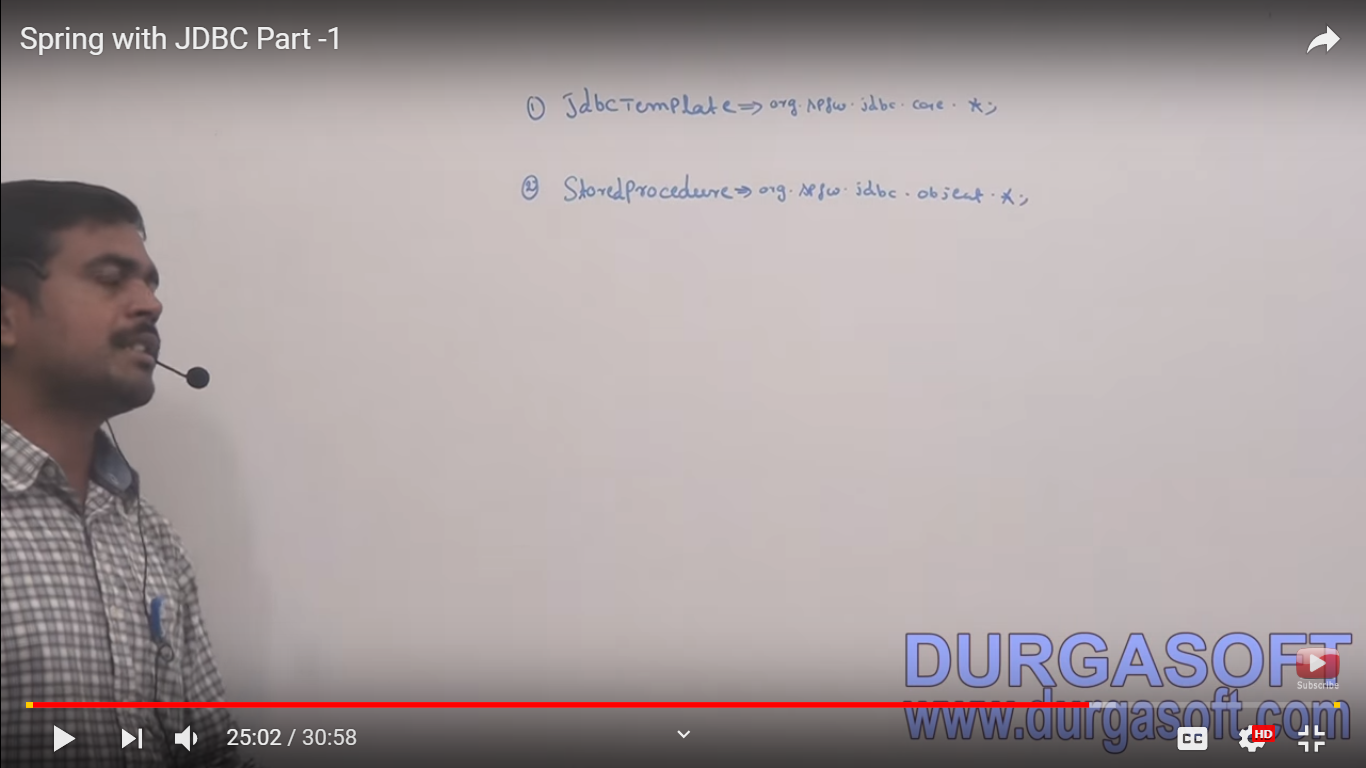 Spring with JDBC Part -1
① JdbcTemplate ⇒ org.spfw.jdbc.core.*;
② StoredProcedure ⇒ org.spfw.jdbc.object.*;
DURGASOFT
Subscribe
www.durgasoft.com
25:02 / 30:58
CC
HD